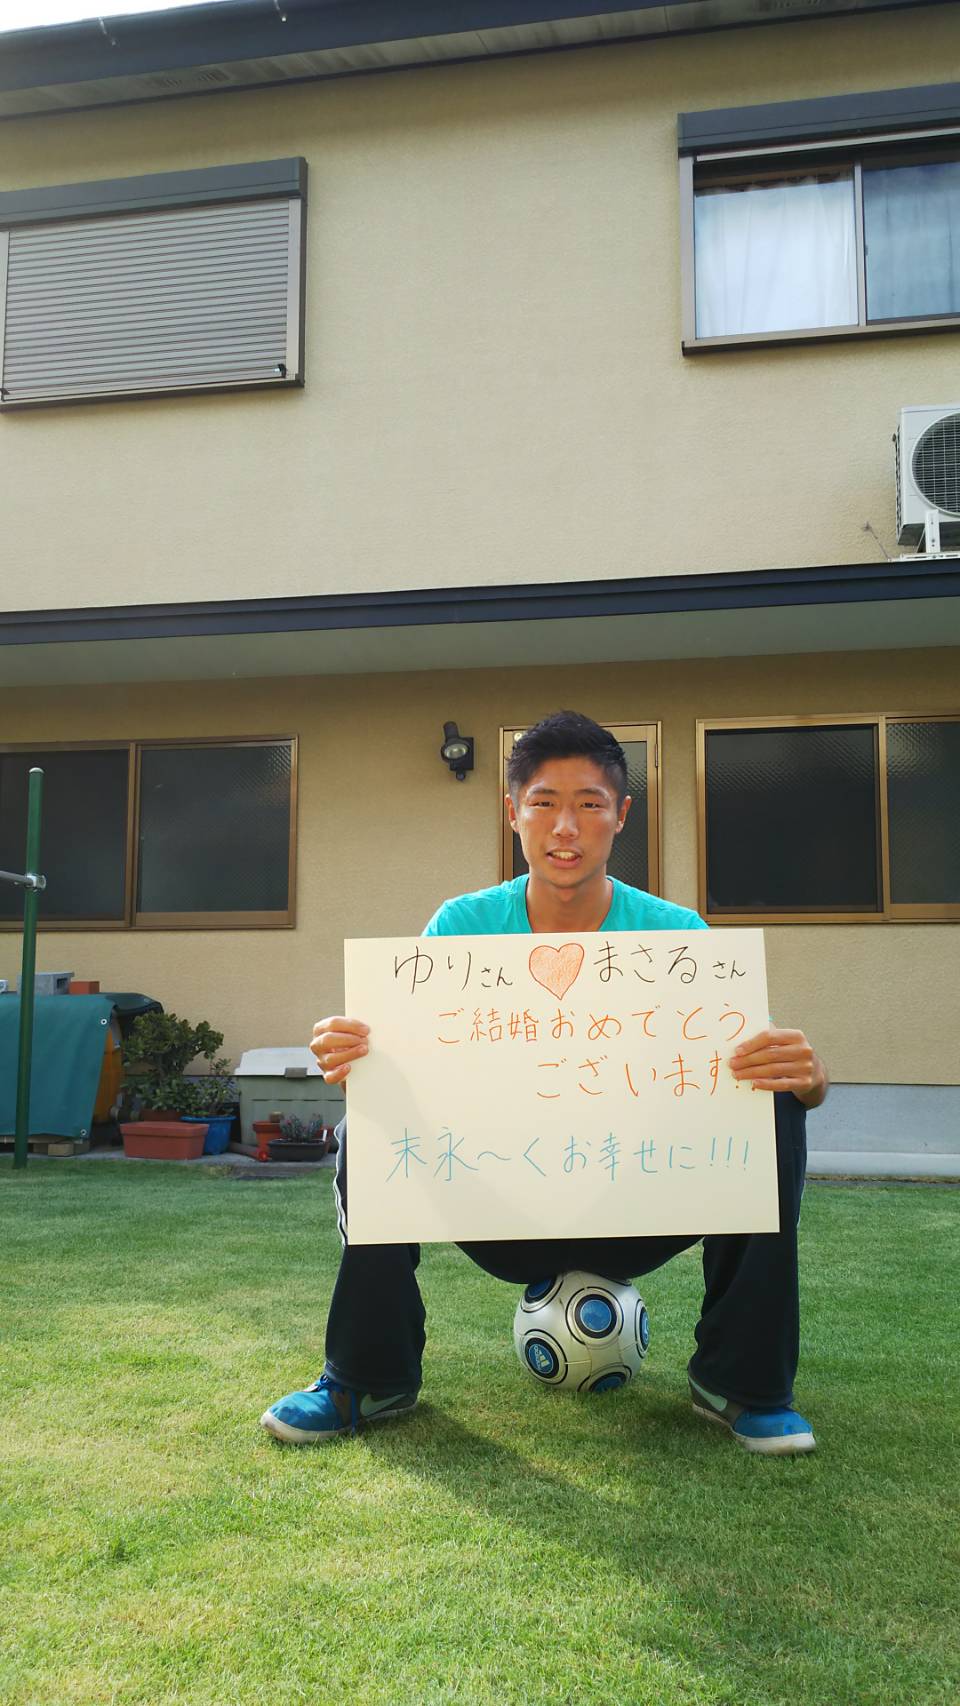 ゆりさん♡まさるさん
ご結婚おめでとう
ございます!!
末永〜くお幸せに!!!
adidas